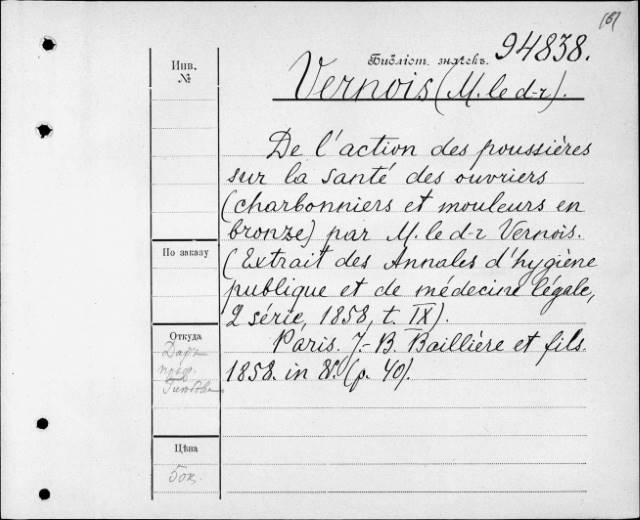 (6)
Библіот. значекъ. 94838.
Инв.
№
Vernois (M. le d-r).
De l'action des poussières
sur la santé des ouvriers
(charbonniers et mouleurs en
bronze) par M. le d-r Vernois.
(Extrait des Annales d'hygiène
publique et de médecine légale,
2 série, 1858, t. IX).
Paris. J.-B. Baillière et fils.
1858. in 8º. (p. 40).
По заказу
Откуда
Даръ
проф.
Цѣна
50к.